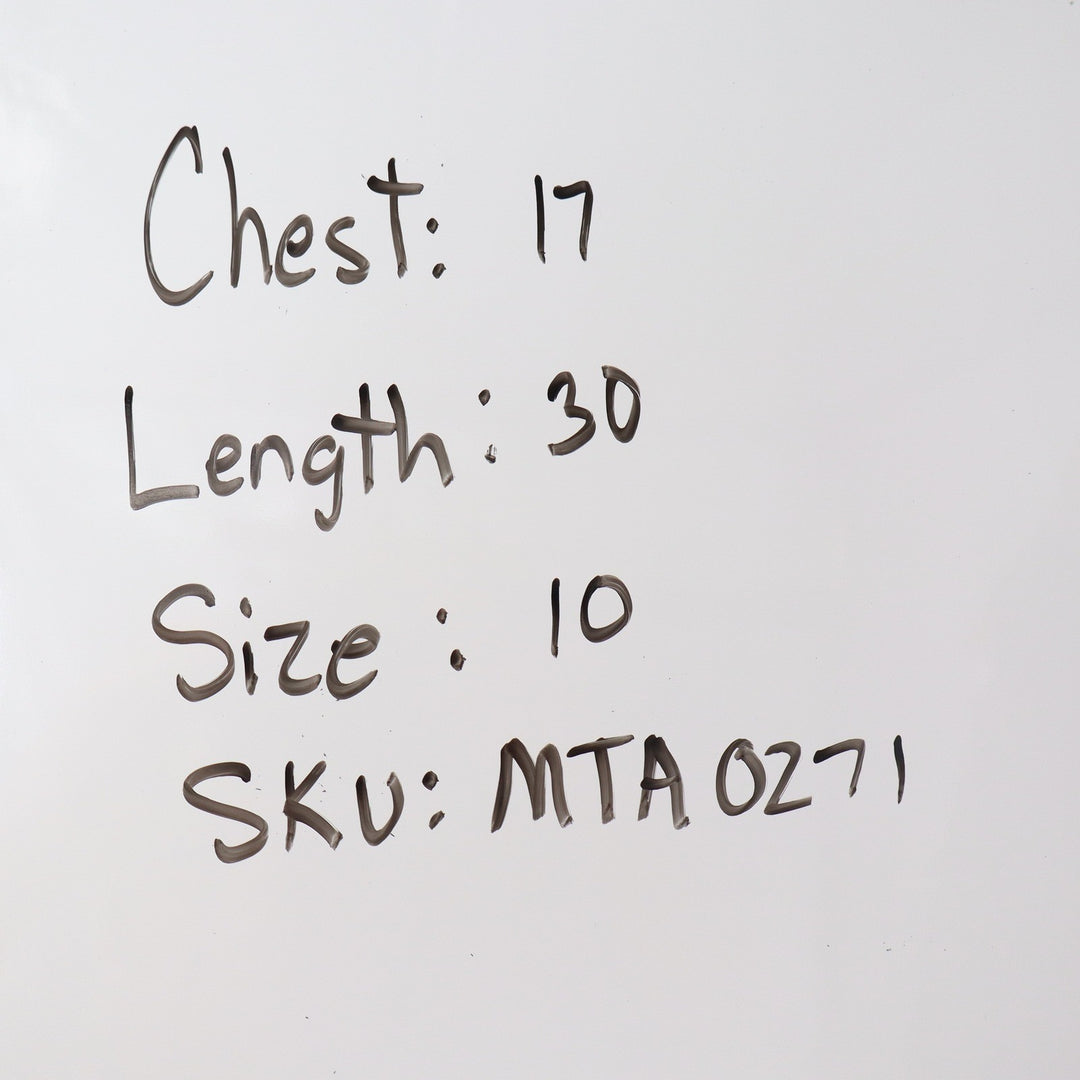 Chest: 17
Length: 30
Size: 10
SKU: MTA 0271